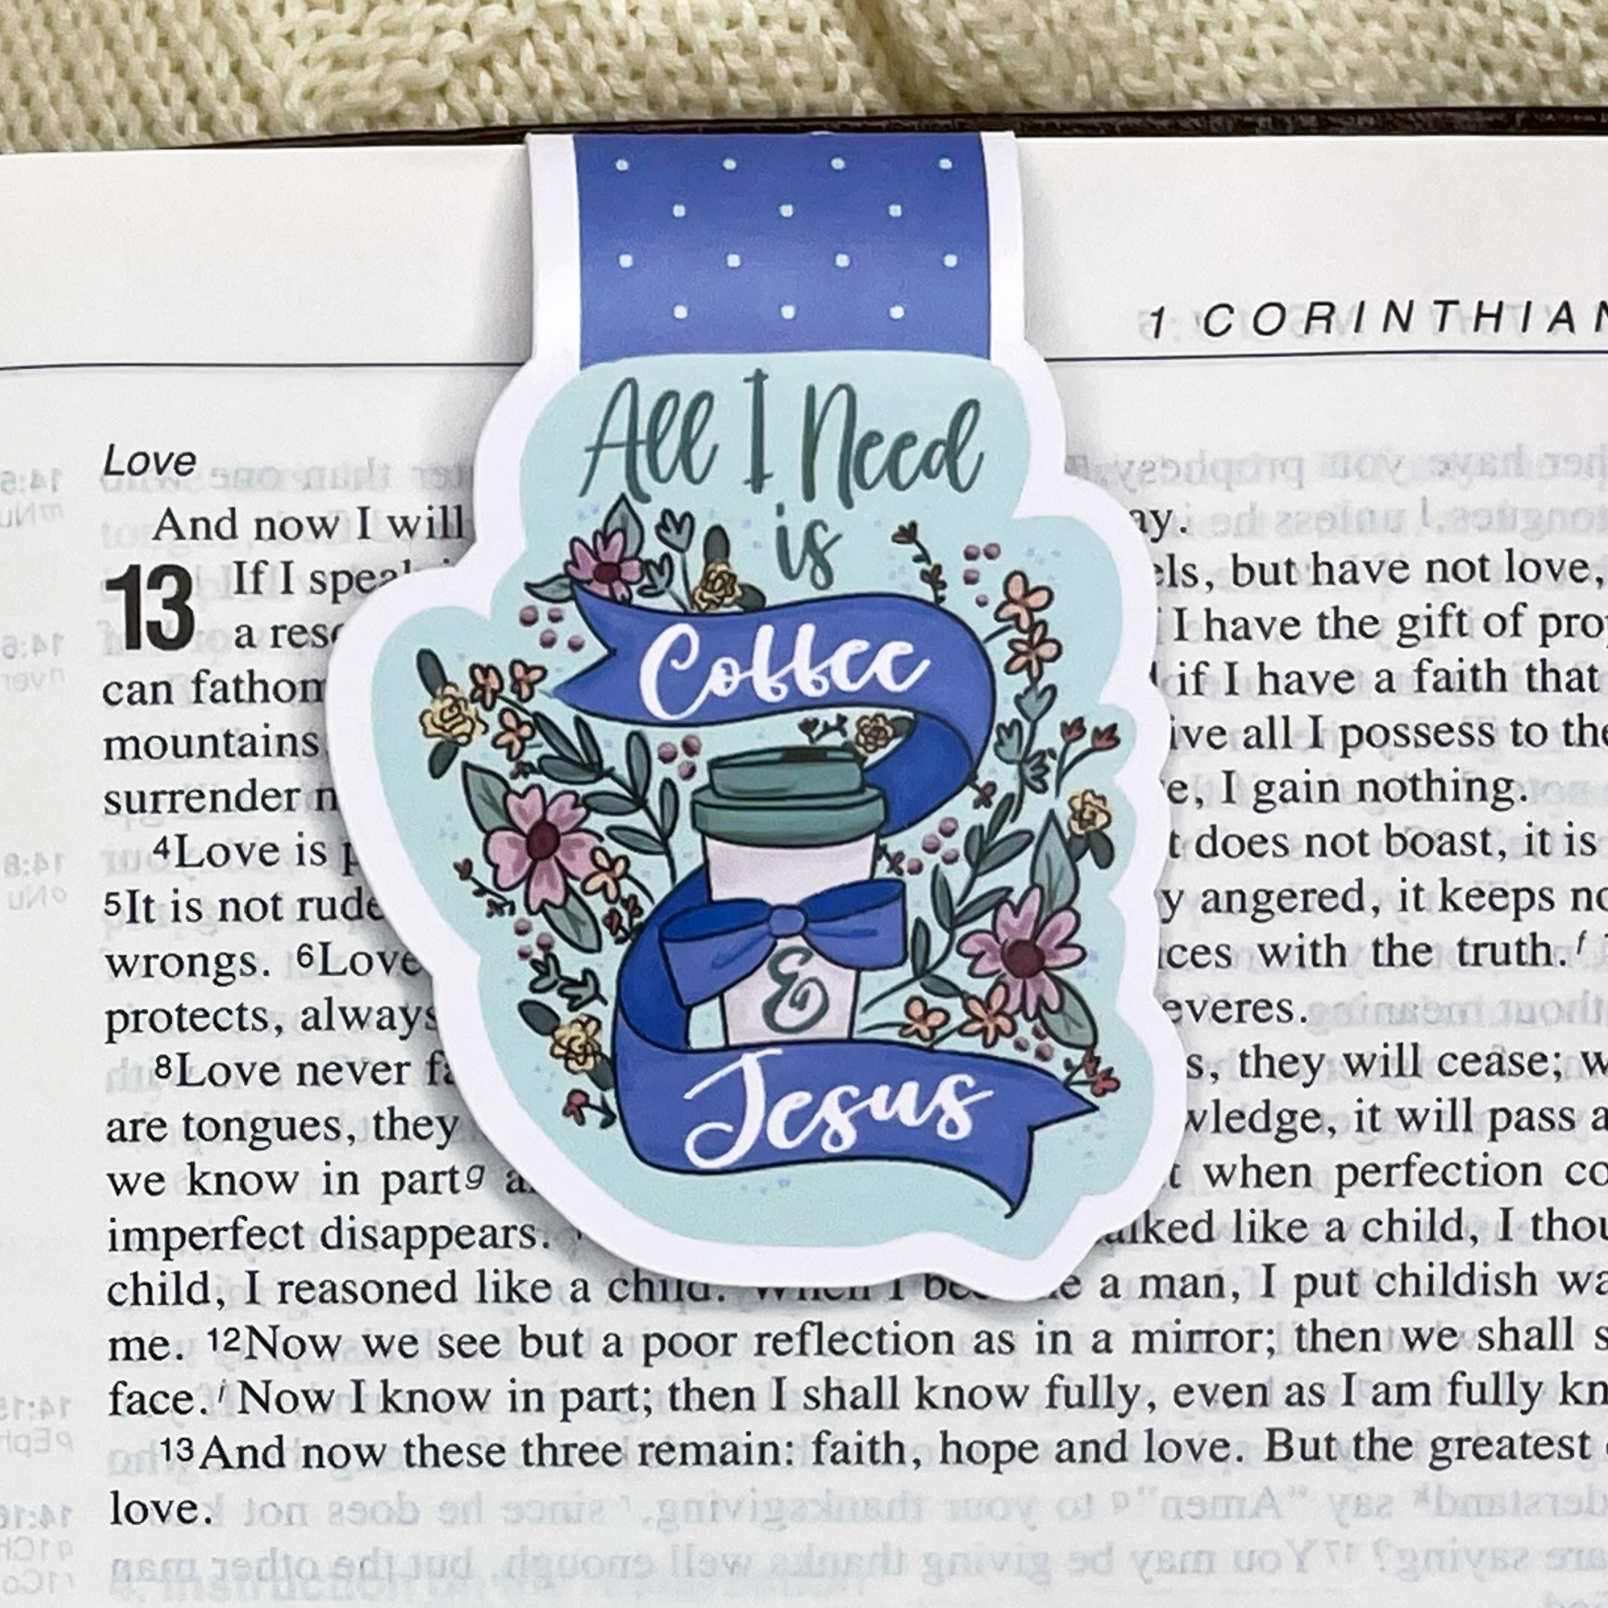 1 CORINTHIAN
All I Need
is
Coffee
&
Jesus
Love
And now I will ay.
13 If I speak els, but have not love,
a res I have the gift of pro
can fathom if I have a faith that
mountains ive all I possess to the
surrender e, I gain nothing.
4Love is t does not boast, it is
5It is not rude y angered, it keeps no
wrongs. 6Love ces with the truth.f
protects, always everes.
8Love never s, they will cease; w
are tongues, they wledge, it will pass a
we know in part g a t when perfection co
imperfect disappears. alked like a child, I thou
child, I reasoned like a child. When I be e a man, I put childish wa
me. 12Now we see but a poor reflection as in a mirror; then we shall s
face. Now I know in part; then I shall know fully, even as I am fully kn
13And now these three remain: faith, hope and love. But the greatest
love.